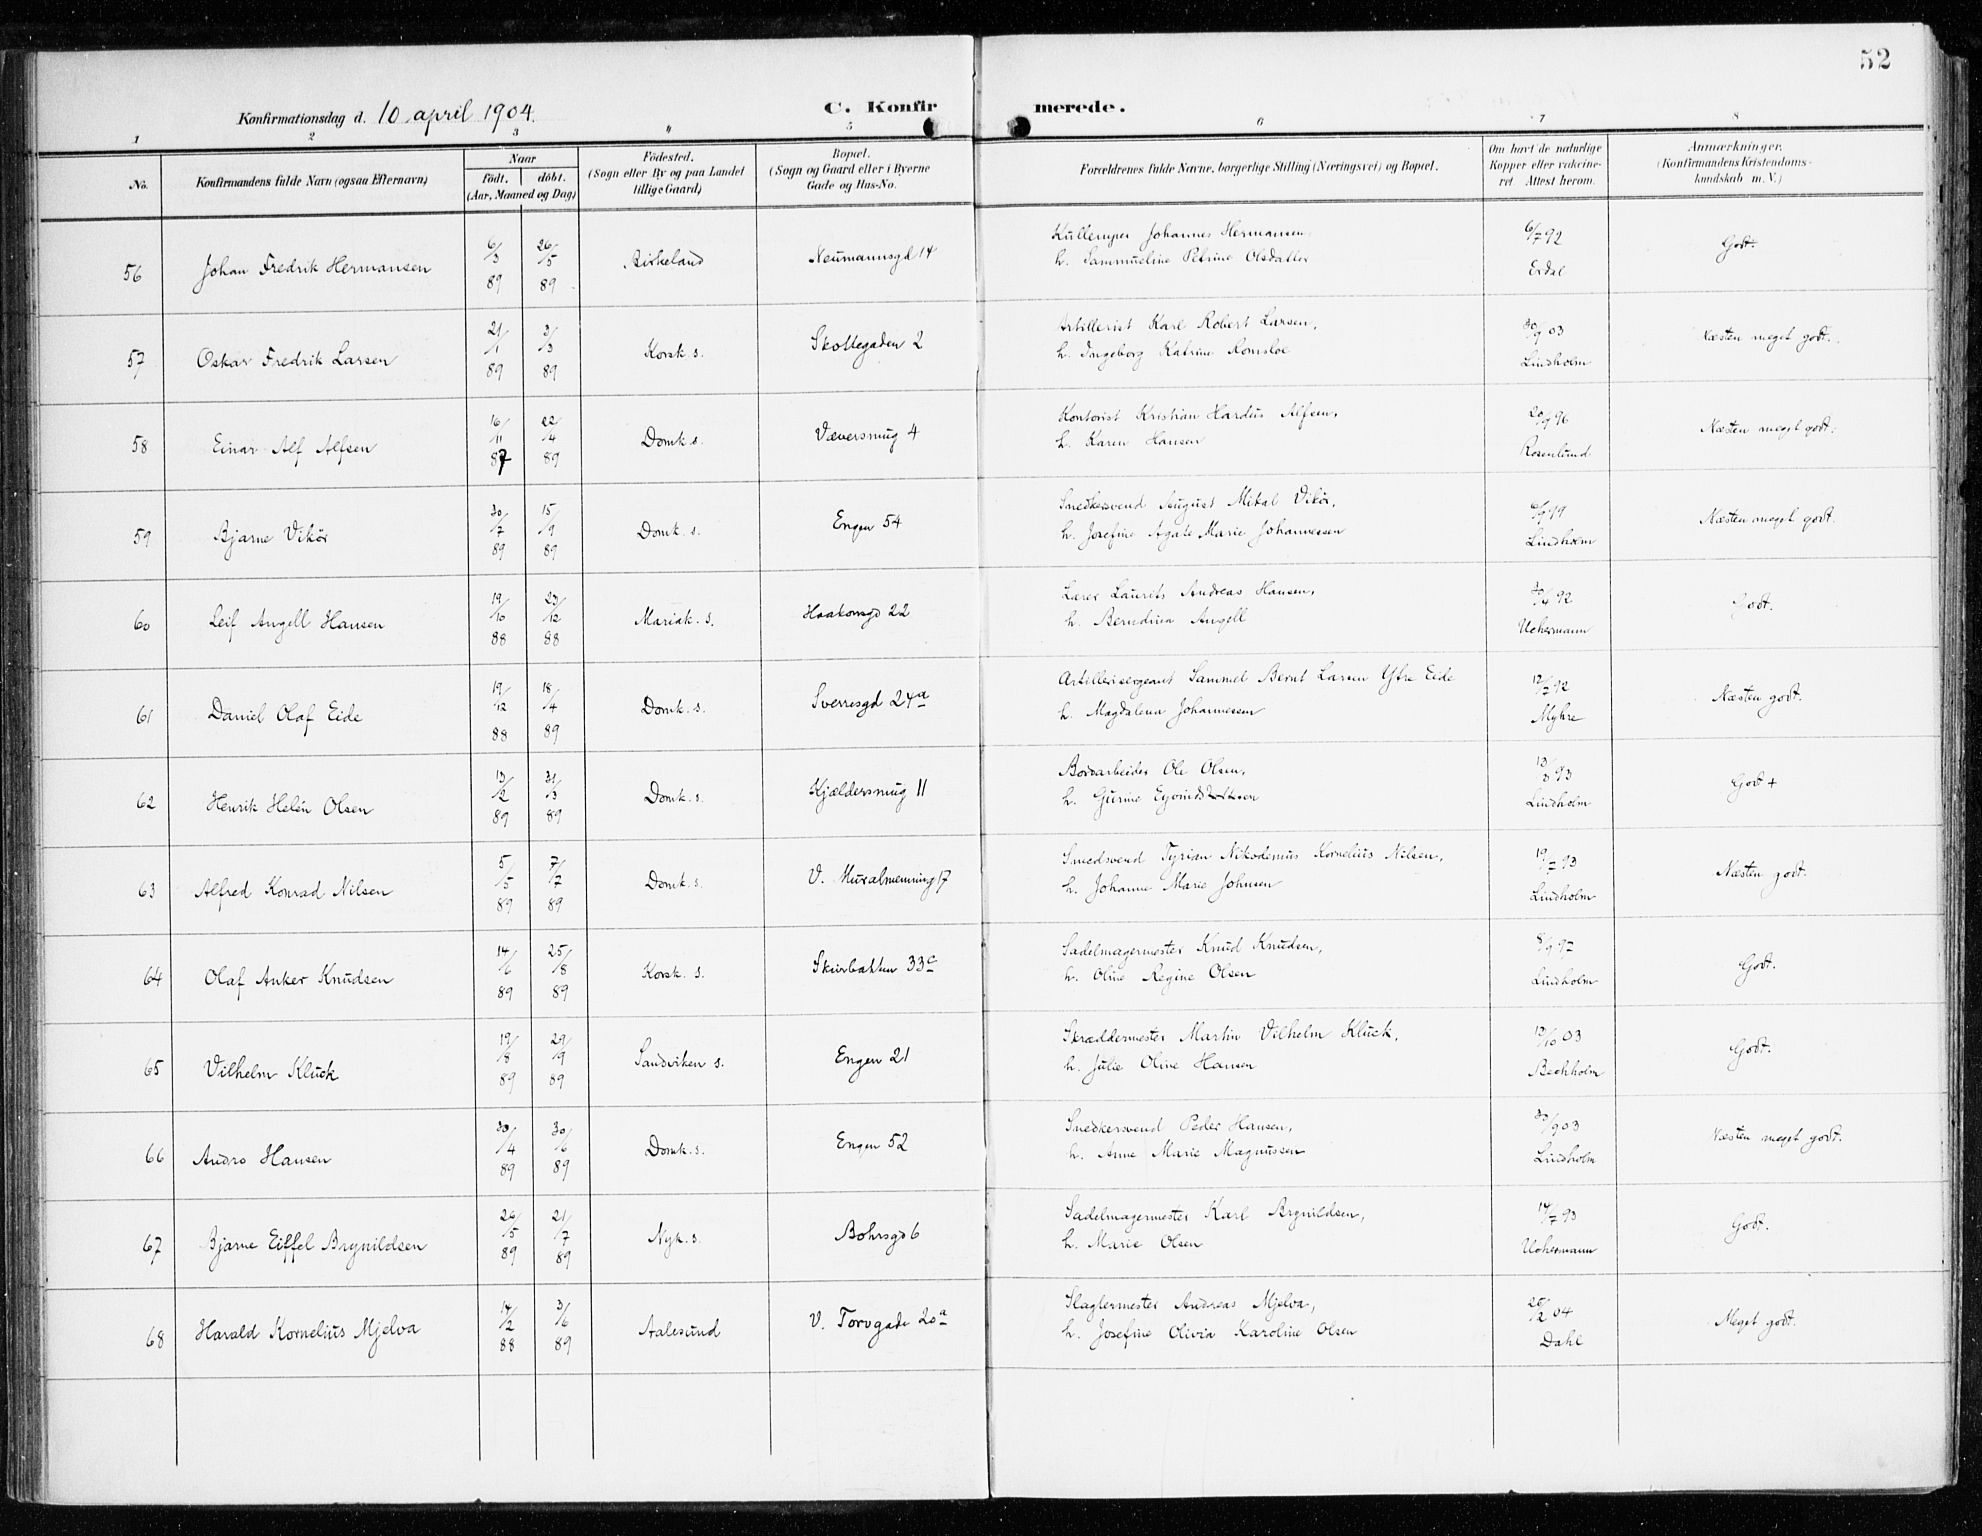 52
Konfirmationsdag d. 10. april 1904.
C. Konfirmerede.
1 2 3 4 5 6 7 8
No.
Konfirmandens fulde Navn (ogsaa Efternavn)
Naar
født. døbt.
(Aar, Maaned og Dag)
Fødested.
(Sogn eller By og paa Landet
tillige Gaard)
Bopæl.
(Sogn og Gaard eller i Byerne
Gade og Hus-No.
Forældrenes fulde Navne, borgerlige Stilling (Næringsvei) og Bopæl.
Om havt de naturlige
Kopper eller vakcine-
ret Attest herom.
Anmærkninger.
(Konfirmandens Kristendoms-
kundskab m. V.)
56 Johan Fredrik Hermansen 6/3 89 26/5 89 Birkeland Neumannsgd 14 Kullemper Johannes Hermansen, 6/7 92 Godt.
h. Sammueline Petrine Olsdatter Erdal
57 Oskar Fredrik Larsen 21/1 89 3/3 89 Korsk. s. Skottegaden 2 Artillerist Karl Robert Larsen, 30/9 03 Næsten meget godt.
h. Ingeborg Katrine Romsloe Lindholm
58 Einar Alf Alfsen 16/11 87 22/4 89 Domk. s. Væversmug 4 Kontorist Kristian Hardus Alfsen, 20/9 96 Næsten meget godt.
h. Karen Hansen Rosenlund
59 Bjarne Vikør 30/7 89 15/9 89 Domk. s. Engen 54 Snedkersvend August Mikal Vikør, Næsten meget godt.
h. Josefine Agate Marie Johannessen Lindholm
60 Leif Angell Hansen 19/10 88 23/12 88 Mariak. s. Haakonsgd 22 Lærer Laurits Andreas Hansen, Godt.
h. Berndina Angell Uchermann
61 Daniel Olaf Eide 19/12 88 18/4 89 Domk. s. Sverresgd 24a Artillerisergeant Sammel Bernt Larsen Ytre Eide 12/7 92 Næsten godt.
h. Magdalena Johannessen Myhre
62 Henrik Helén Olsen 13/2 89 31/3 89 Domk. s. Kjældersmug 11 Bordarbeider Ole Olsen, 13/3 93 Godt +
h. Gurine Lindholm
63 Alfred Konrad Nilsen 5/5 89 7/7 89 Domk. s. V. Muralmenning 17 Smedsvend Tyrian Nikodemus Kornelius Nilsen, 19/7 93 Næsten godt.
h. Johanne Marie Johnsen Lindholm
64 Olaf Anker Knudsen 14/6 89 25/8 89 Korsk. s. Skivebakken 33c Sadelmagermester Knud Knudsen, 8/9 97 Godt.
h. Oline Regine Olsen Lindholm
65 Vilhelm Kluck 19/8 89 29/9 89 Sandviken s. Engen 21 Skræddermester Martin Vilhelm Kluck, 13/10 03 Godt.
h. Julie Oline Hansen Bechholm
66 Andro Hansen 30/4 89 30/6 89 Domk. s. Engen 52 Snedkersvend Peder Hansen, 30/9 03 Næsten meget godt.
h. Anne Marie Magnussen Lindholm
67 Bjarne Eiffel Brynildsen 26/5 89 21/7 89 Nyk. s. Bohrsgd 6 Sadelmagermester Karl Brynildsen, 14/7 93 Godt.
h. Marie Olsen Uchermann
68 Harald Kornelius Mjelva 14/2 88 3/6 89 Aalesund V. Torvgade 20a Slagtermester Andreas Mjelva, 26/2 04 Meget godt.
h. Josefine Olivia Karoline Olsen Dahl